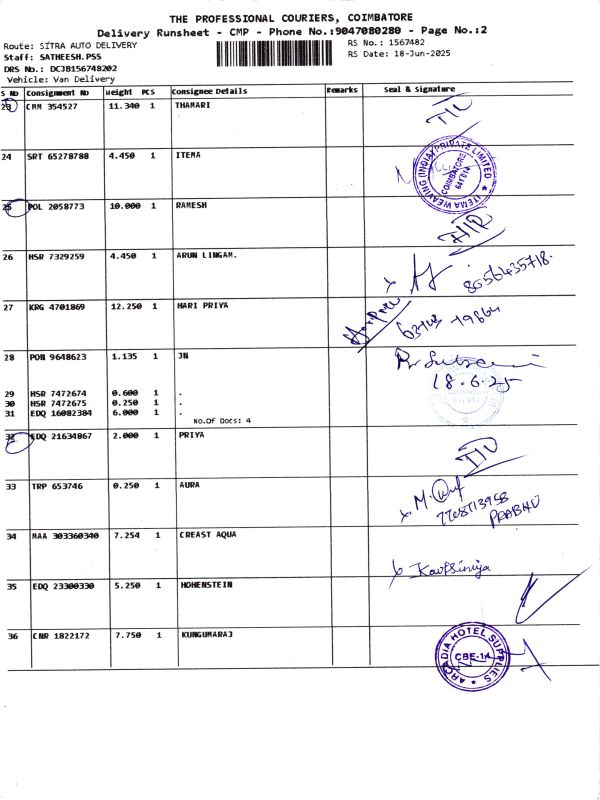 THE PROFESSIONAL COURIERS, COIMBATORE
Delivery Runsheet - CMP - Phone No.:9047080280 - Page No.:2
Route: SITRA AUTO DELIVERY
RS No.: 1567482
Staff: SATHEESH.PSS
RS Date: 18-Jun-2025
DRS No.: DCJB156748202
Vehicle: Van Delivery
S No Consignment No Weight PCS Consignee Details Remarks Seal & Signature
23 CMM 354527 11.340 1 THAMARI
24 SRT 65278788 4.450 1 ITEMA
ITEMA WEAVING (INDIA) PRIVATE LIMITED
COIMBATORE
641014
25 POL 2058773 10.000 1 RAMESH
26 HSR 7329259 4.450 1 ARUN LINGAM.
8056435718.
27 KRG 4701869 12.250 1 HARI PRIYA
28 PON 9648623 1.135 1 JN
18.6.25
29 HSR 7472674 0.600 1 .
30 HSR 7472675 0.250 1 .
31 EDQ 16082384 6.000 1 .
No.Of Docs: 4
32 EDQ 21634867 2.000 1 PRIYA
33 TRP 653746 0.250 1 AURA
PRABHU
34 MAA 303360340 7.254 1 CREAST AQUA
35 EDQ 23300330 5.250 1 HOHENSTEIN
36 CNR 1822172 7.750 1 KUNGUMARAJ
ARCADIA HOTEL SUPPLIES
CBE-14